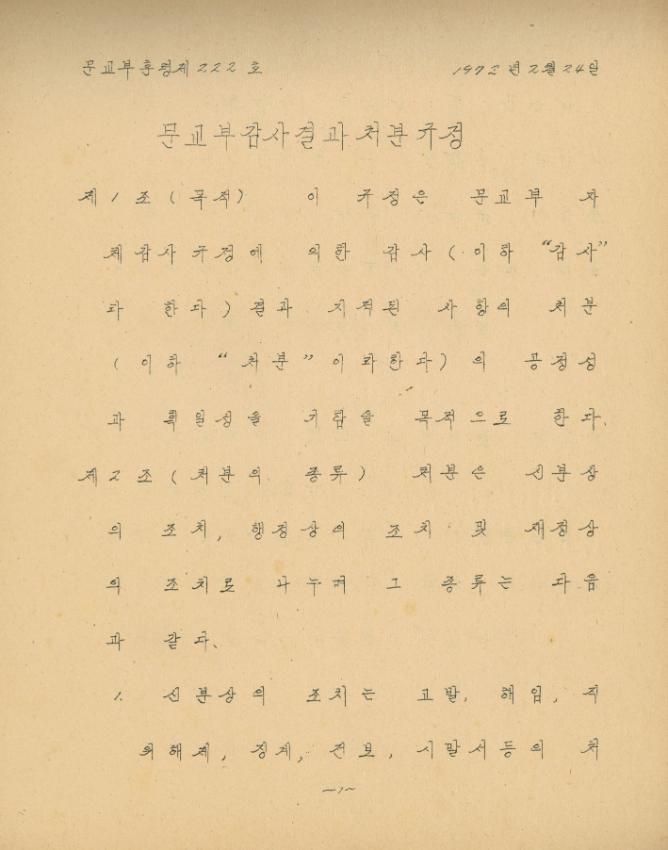 문교부훈령제222호 1972년2월24일
문교부감사결과처분규정
제1조(목적) 이 규정은 문교부 자
체감사규정에 의한 감사(이하 “감사”
라 한다)결과 지적된 사항의 처분
(이하 “처분”이라한다)의 공정성
과 획일성을 기함을 목적으로 한다.
제2조(처분의 종류) 처분은 신분상
의 조치, 행정상의 조치 및 재정상
의 조치로 나누며 그 종류는 다음
과 같다.
1. 신분상의 조치는 고발, 해임, 직
위해제, 징계, 전보, 시말서등의 처
-1-